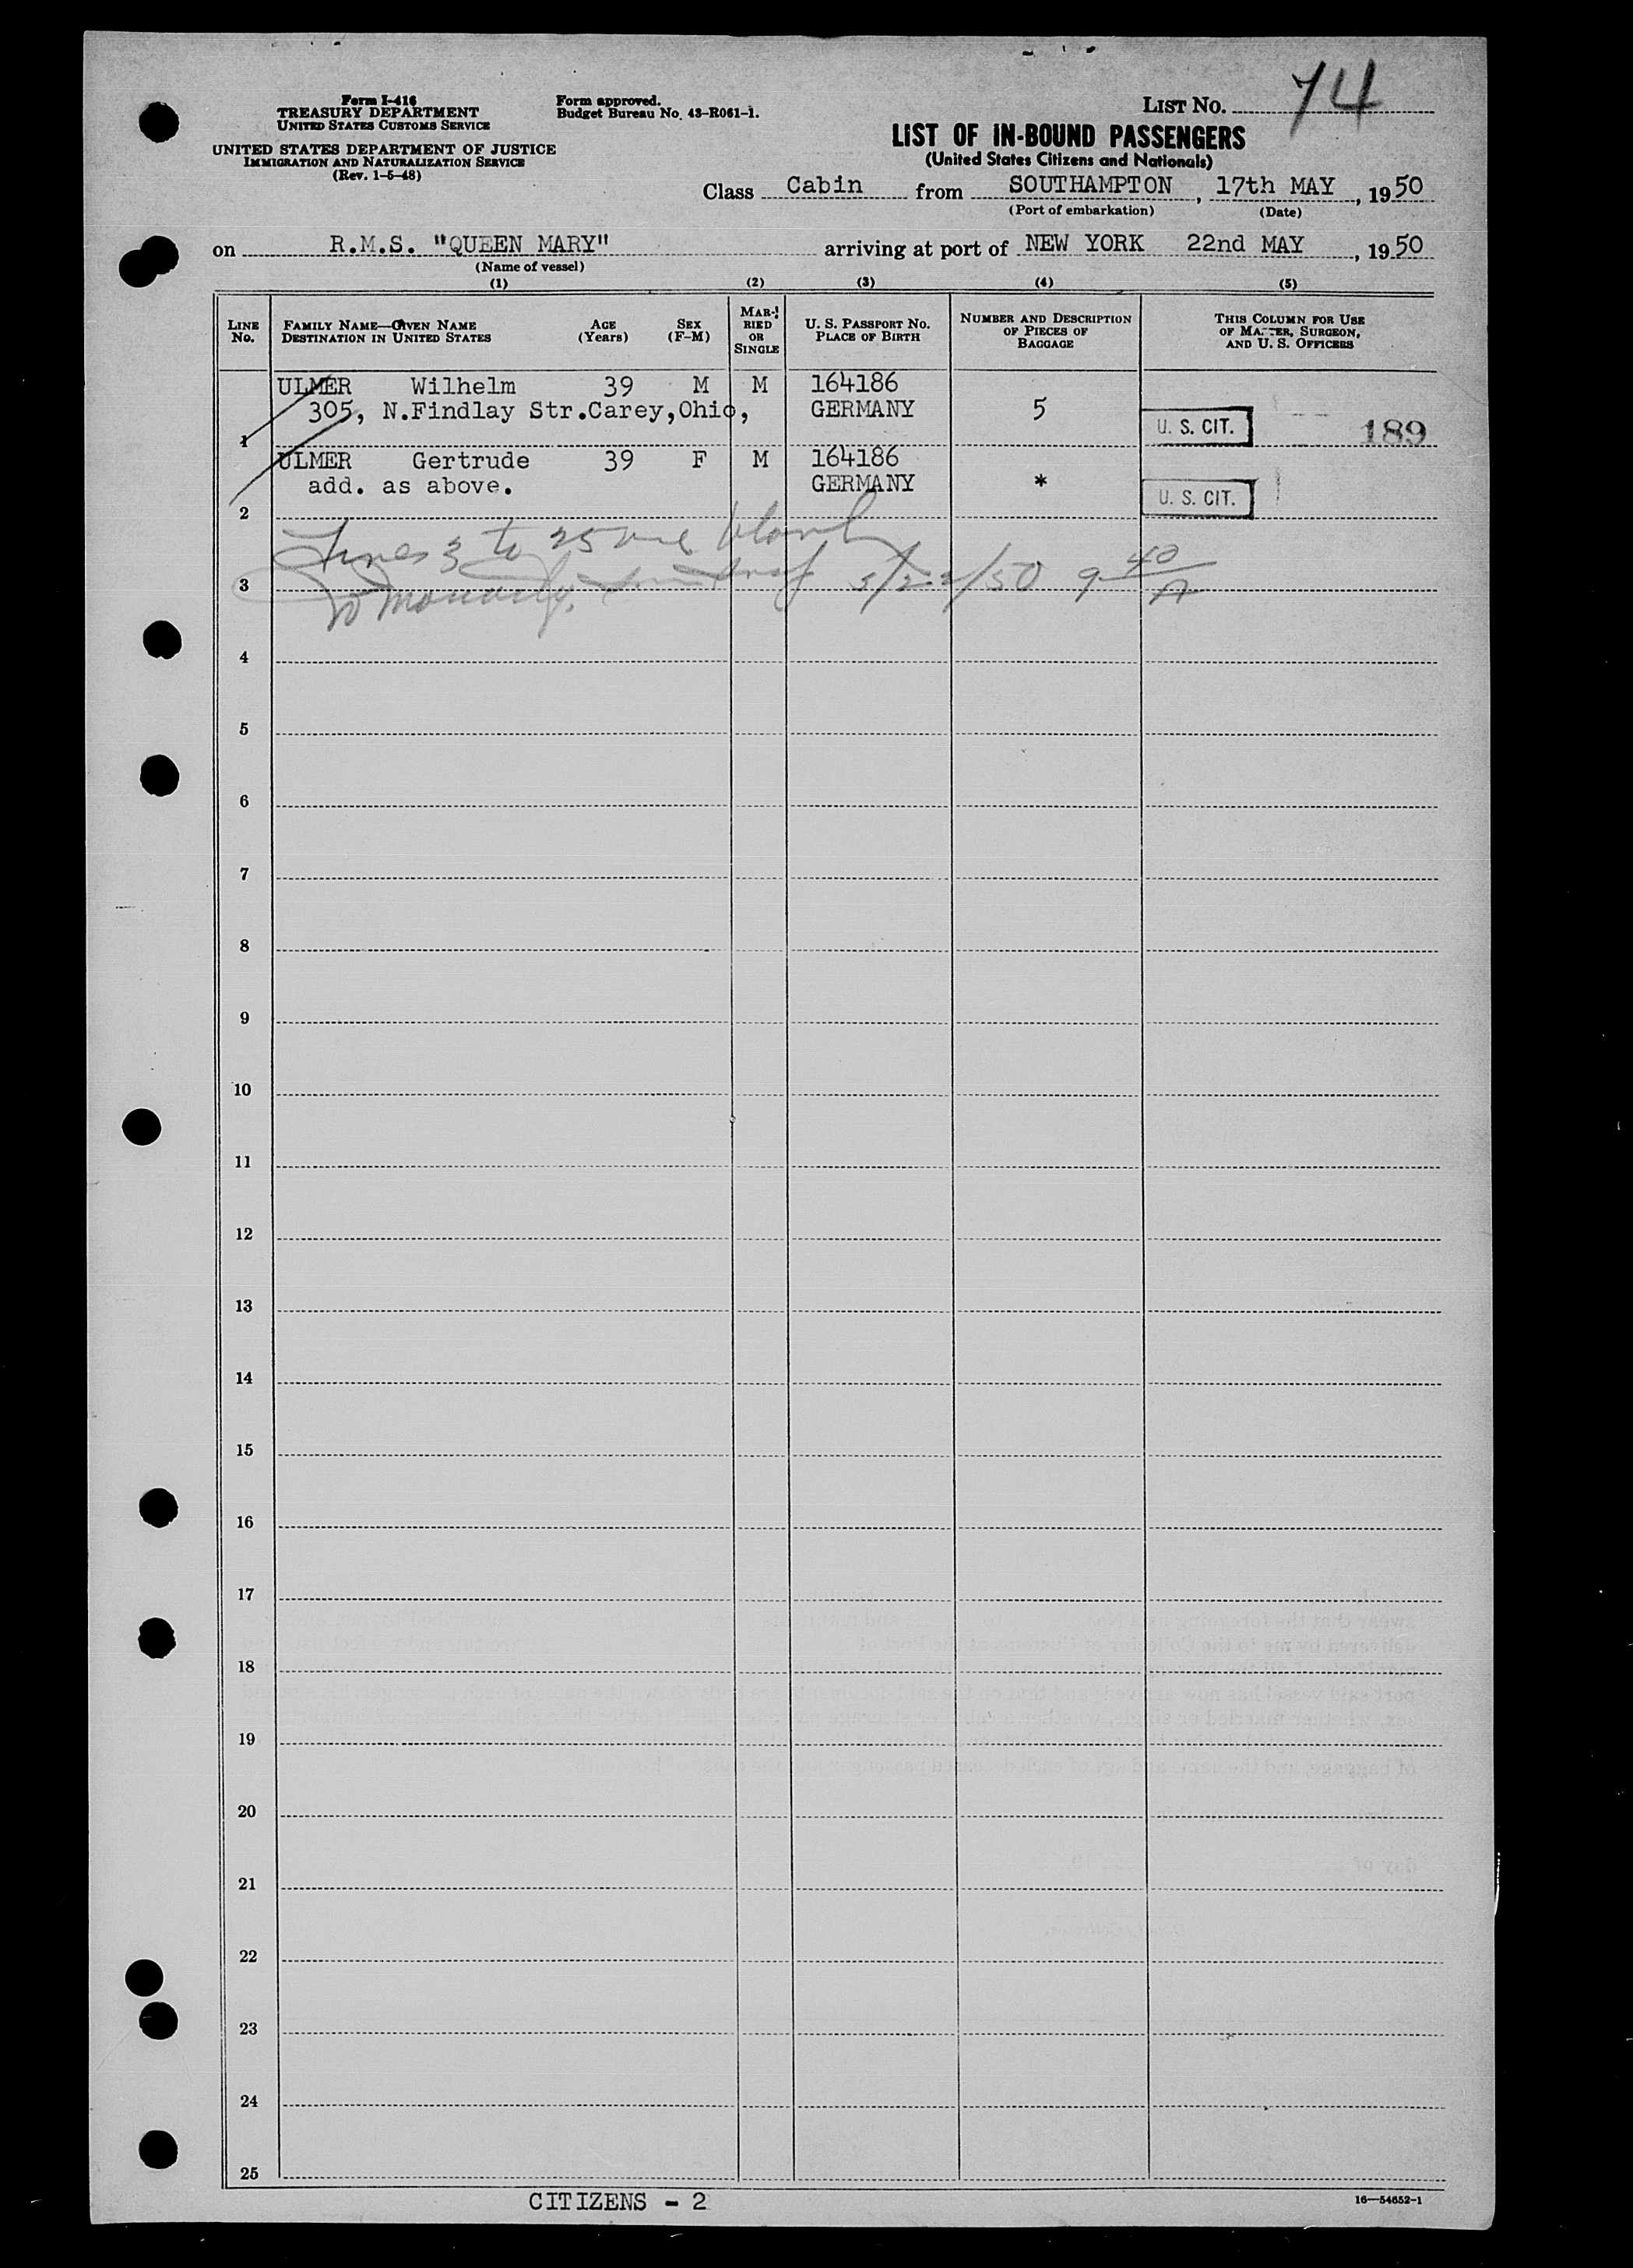 LIST No. 74
Form I-416
TREASURY DEPARTMENT
UNITED STATES CUSTOMS SERVICE
Form approved.
Budget Bureau No. 43-R061-1.
UNITED STATES DEPARTMENT OF JUSTICE
IMMIGRATION AND NATURALIZATION SERVICE
(Rev. 1-5-48)
LIST OF IN-BOUND PASSENGERS
(United States Citizens and Nationals)
Class Cabin from SOUTHAMPTON, 17th MAY, 1950
(Port of embarkation) (Date)
on R.M.S. "QUEEN MARY" arriving at port of NEW YORK 22nd MAY, 1950
(Name of vessel)
(1) (2) (3) (4) (5)
LINE No.
FAMILY NAME—GIVEN NAME
DESTINATION IN UNITED STATES
AGE (Years)
SEX (F-M)
MARRIED OR SINGLE
U. S. PASSPORT No.
PLACE OF BIRTH
NUMBER AND DESCRIPTION
OF PIECES OF
BAGGAGE
THIS COLUMN FOR USE
OF MASTER, SURGEON,
AND U. S. OFFICERS
ULMER Wilhelm 39 M M 164186
305, N.Findlay Str.Carey,Ohio, GERMANY 5
1 U. S. CIT. 189
ULMER Gertrude 39 F M 164186
add. as above. GERMANY *
2 U. S. CIT.
Lines 3 to 25 are blank
3 5/22/50 9 40/A
4
5
6
7
8
9
10
11
12
13
14
15
16
17
18
19
20
21
22
23
24
25
CITIZENS - 2
16—54652-1